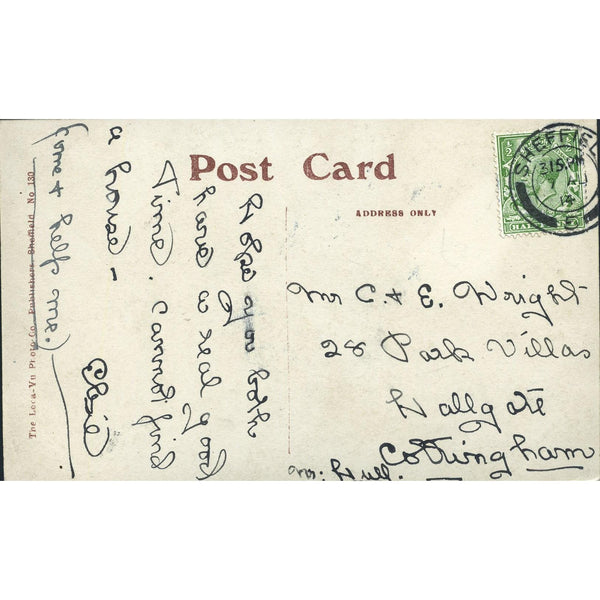 Post Card
ADDRESS ONLY
Hope you both
have a real good
time. Cannot find
a house –
(come & help me.)
Mr C. & E. Wright
28 Park Villas
Hallgate
Cottingham
Nr. Hull.
SHEFFIEL
3 15 PM
14
½
HAL
The Loca-Vu Photo Co. Publishers, Sheffield. No 130